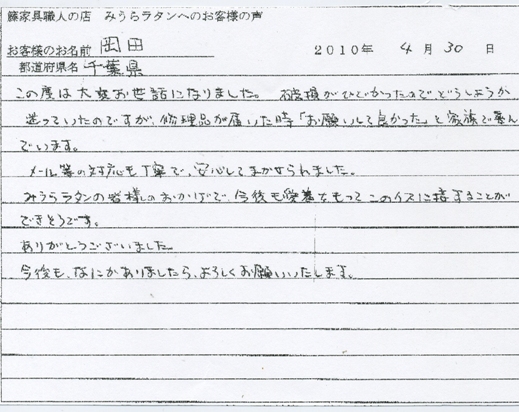 籐家具職人の店 みうらラタンへのお客様の声
お客様のお名前 岡田 2010年 4月 30日
都道府県名 千葉県
この度は大変お世話になりました。 破損がひどかったので、どうしようか
迷っていたのですが、修理品が届いた時「お願いして良かった」と家族で喜ん
でいます。
メール等の対応も丁寧で、安心してまかせられました。
みうらラタンの皆様のおかげで、今後も愛着をもってこのイスに接することが
できそうです。
ありがとうございました。
今後も、なにかありましたら、よろしくお願いいたします。